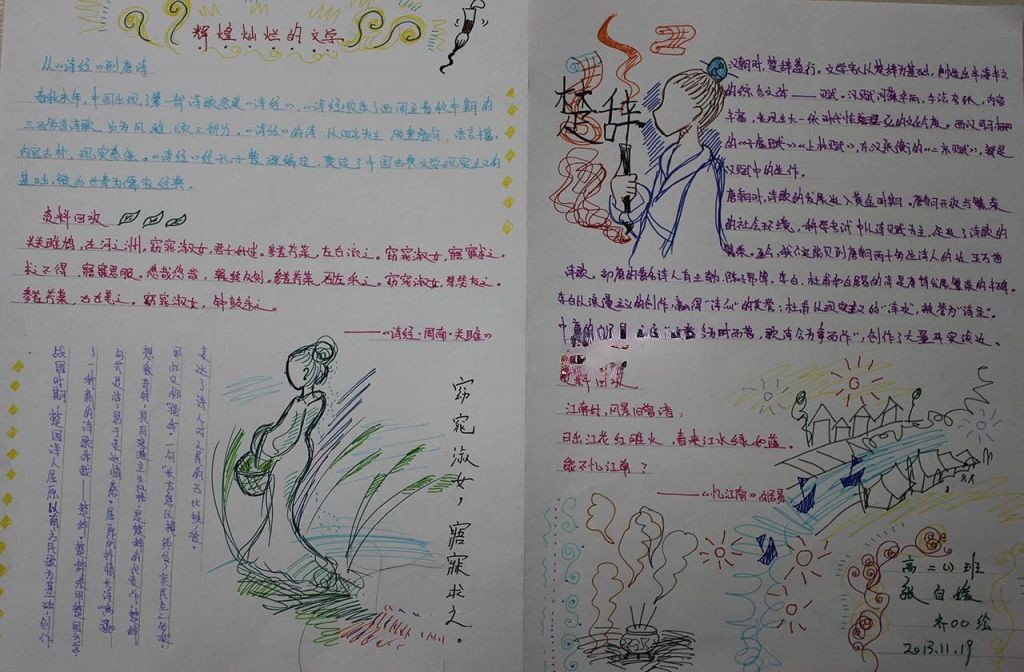 辉煌灿烂的文学
从《诗经》到唐诗
春秋末年，中国出现了第一部诗歌总集《诗经》。《诗经》收集了西周至春秋中期的
三百多首诗歌，分为风雅颂三部分。《诗经》的诗，以四言为主
内容古朴，现实感强。《诗经》经孔子整理编定，奠定了中国古典文学现实主义的
基础，被后世奉为儒家经典。
资料回放
关关雎鸠，在河之洲。窈窕淑女，君子好逑。参差荇菜，左右流之。窈窕淑女，寤寐求之。
求之不得，寤寐思服。悠哉悠哉，辗转反侧。参差荇菜，左右采之。窈窕淑女，琴瑟友之。
参差荇菜，左右芼之。窈窕淑女，钟鼓乐之。
——《诗经·周南·关雎》
战国时期，楚国诗人屈原以南方民歌为基础，创作
了一种新的诗歌体裁——楚辞。楚辞采用楚国方言
句式灵活，易于表达情感。屈原的抒情长诗《离骚》
想象奇特，具有浪漫主义风格，是楚辞的代表作，楚辞
因此又称"骚体"。
窈窕淑女，寤寐求之。
楚辞
汉朝时，楚辞盛行。文学家从楚辞为基础，创造出半诗半文
的综合文体——赋。汉赋词藻华丽，手法夸张，内容
丰富，表现出大一统时代恢宏
的《子虚赋》《上林赋》，东汉张衡的《二京赋》，都是
汉赋中的佳作。
唐朝时，诗歌的发展进入黄金时期。唐朝开放与繁荣
的社会环境，科举考试中以诗赋为主，促进了诗歌的
繁荣。至今，我们还能见到唐朝两千多位诗人的近五万首
诗歌。初唐的著名诗人有王勃、陈子昂等。李白、杜甫和白居易的诗是唐诗发展繁荣的
李白以浪漫主义的创作，赢得"诗仙"的美誉；杜甫以现实主义的"诗史"，被誉为"诗圣"。
为时而著，歌诗合为事而作"，创作了大量
资料回放
江南好，风景旧曾谙；
日出江花红胜火，春来江水绿如蓝。
能不忆江南？
——《忆江南》白居易
高二(1)班
张白媛
齐〇〇绘
2013.11.19